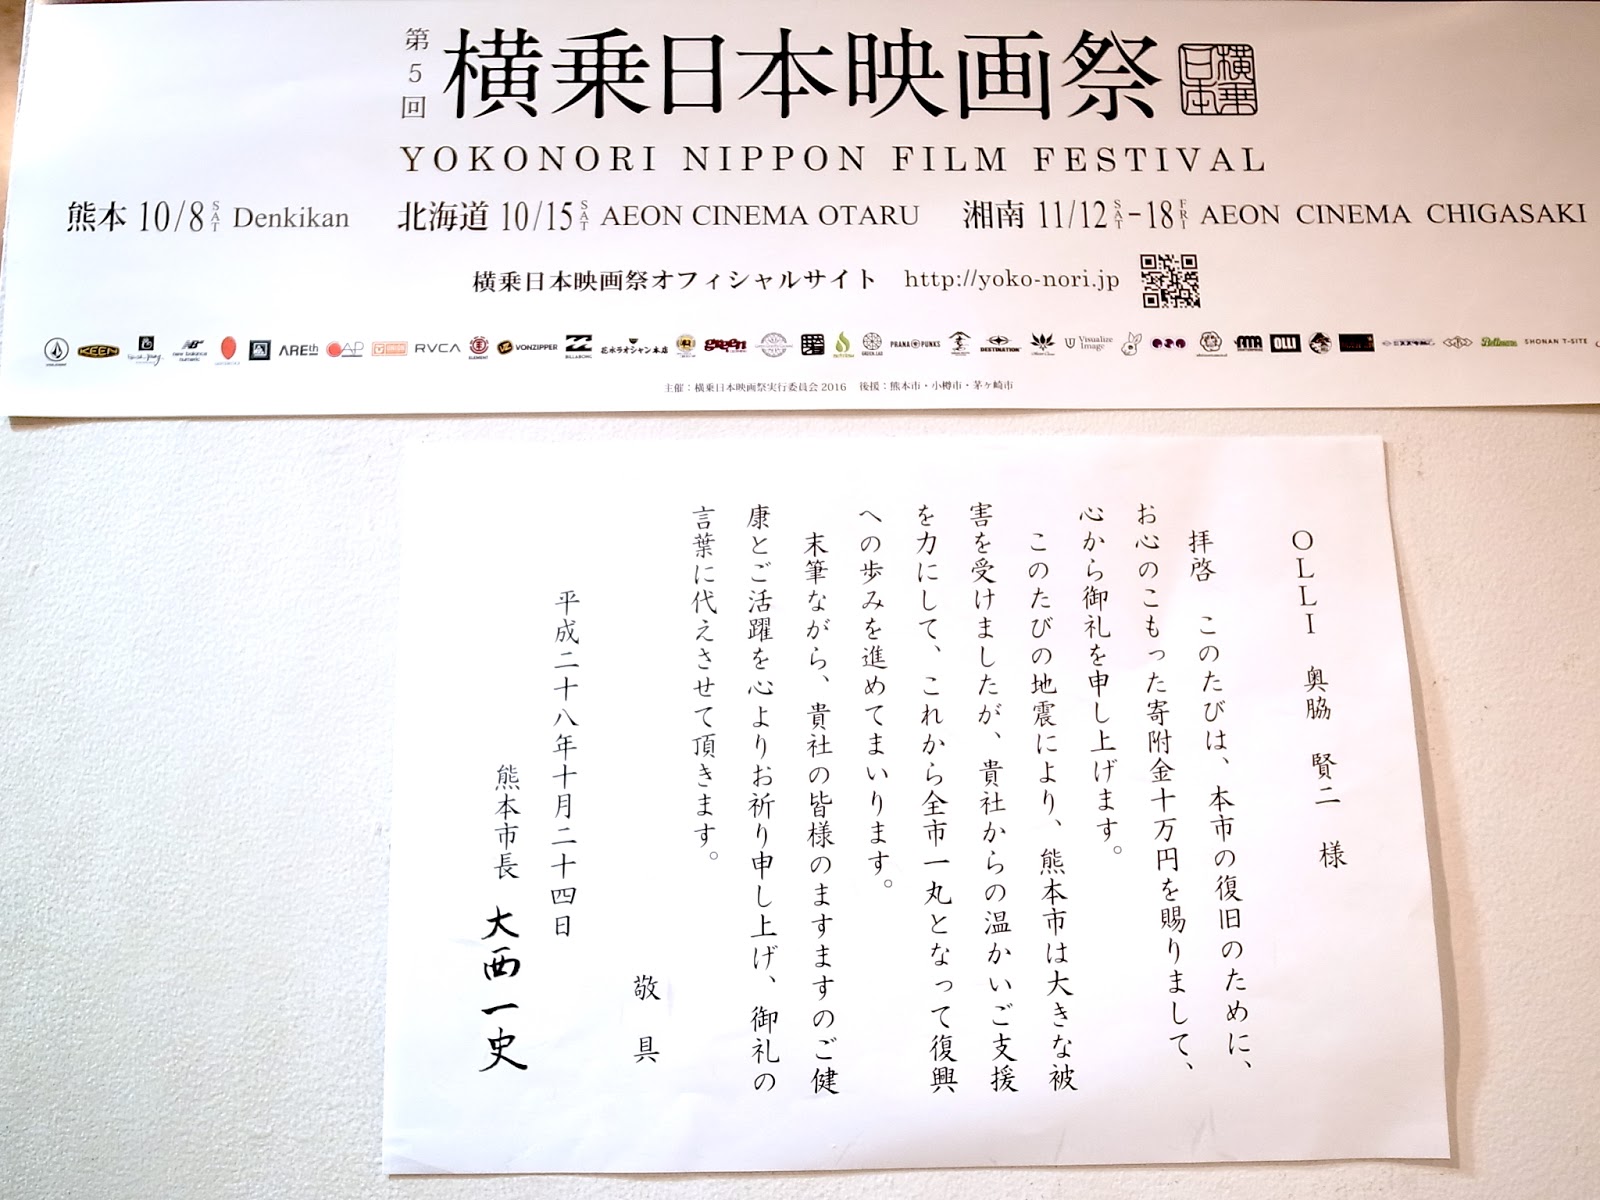 第5回
横乗日本映画祭
横乗日本
YOKONORI NIPPON FILM FESTIVAL
熊本 10/8 SAT Denkikan 北海道 10/15 SAT AEON CINEMA OTARU 湘南 11/12 SAT-18 FRI AEON CINEMA CHIGASAKI
横乗日本映画祭オフィシャルサイト http://yoko-nori.jp
KEEN new balance numeric AREth CAP RVCA ELEMENT VONZIPPER BILLABONG 花水ラオシャン本店 green PRANA PUNKS DESTINATION Visualize Image OLLI SHONAN T-SITE
主催：横乗日本映画祭実行委員会 2016 後援：熊本市・小樽市・茅ヶ崎市
OLLI 奥脇 賢二 様
拝啓 このたびは、本市の復旧のために、
お心のこもった寄附金十万円を賜りまして、
心から御礼を申し上げます。
このたびの地震により、熊本市は大きな被
害を受けましたが、貴社からの温かいご支援
を力にして、これから全市一丸となって復興
への歩みを進めてまいります。
末筆ながら、貴社の皆様のますますのご健
康とご活躍を心よりお祈り申し上げ、御礼の
言葉に代えさせて頂きます。
敬具
平成二十八年十月二十四日
熊本市長 大西一史